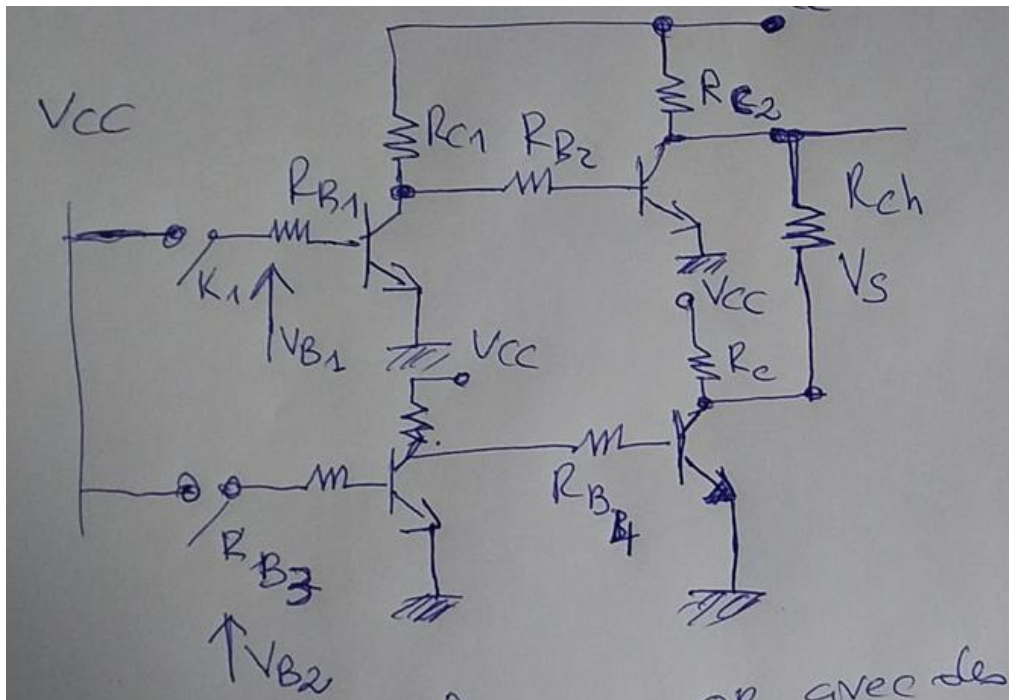 VCC
RC1
RB2
RC2
RB1
Rch
K1
VS
VCC
VB1
VCC
Rc
RB3
RB4
VB2
avec des